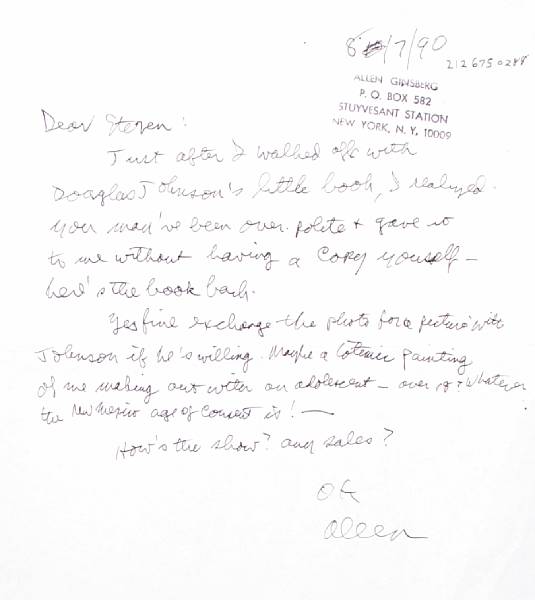 8/7/90
212 675 0244
ALLEN GINSBERG
P. O. BOX 582
STUYVESANT STATION
NEW YORK, N. Y. 10009
Dear Steven:
Just after I walked off with
Douglas Johnson's little book, I realized
you may've been over polite + gave it
to me without having a Copy youself –
here's the book back.
Yes fine exchange the photo for a picture with
Johnson if he's willing. Maybe a totemic painting
of me making out with an adolescent – over or whatever
the New Mexico age of Consent is! —
How's the show? any sales?
OK
Allen